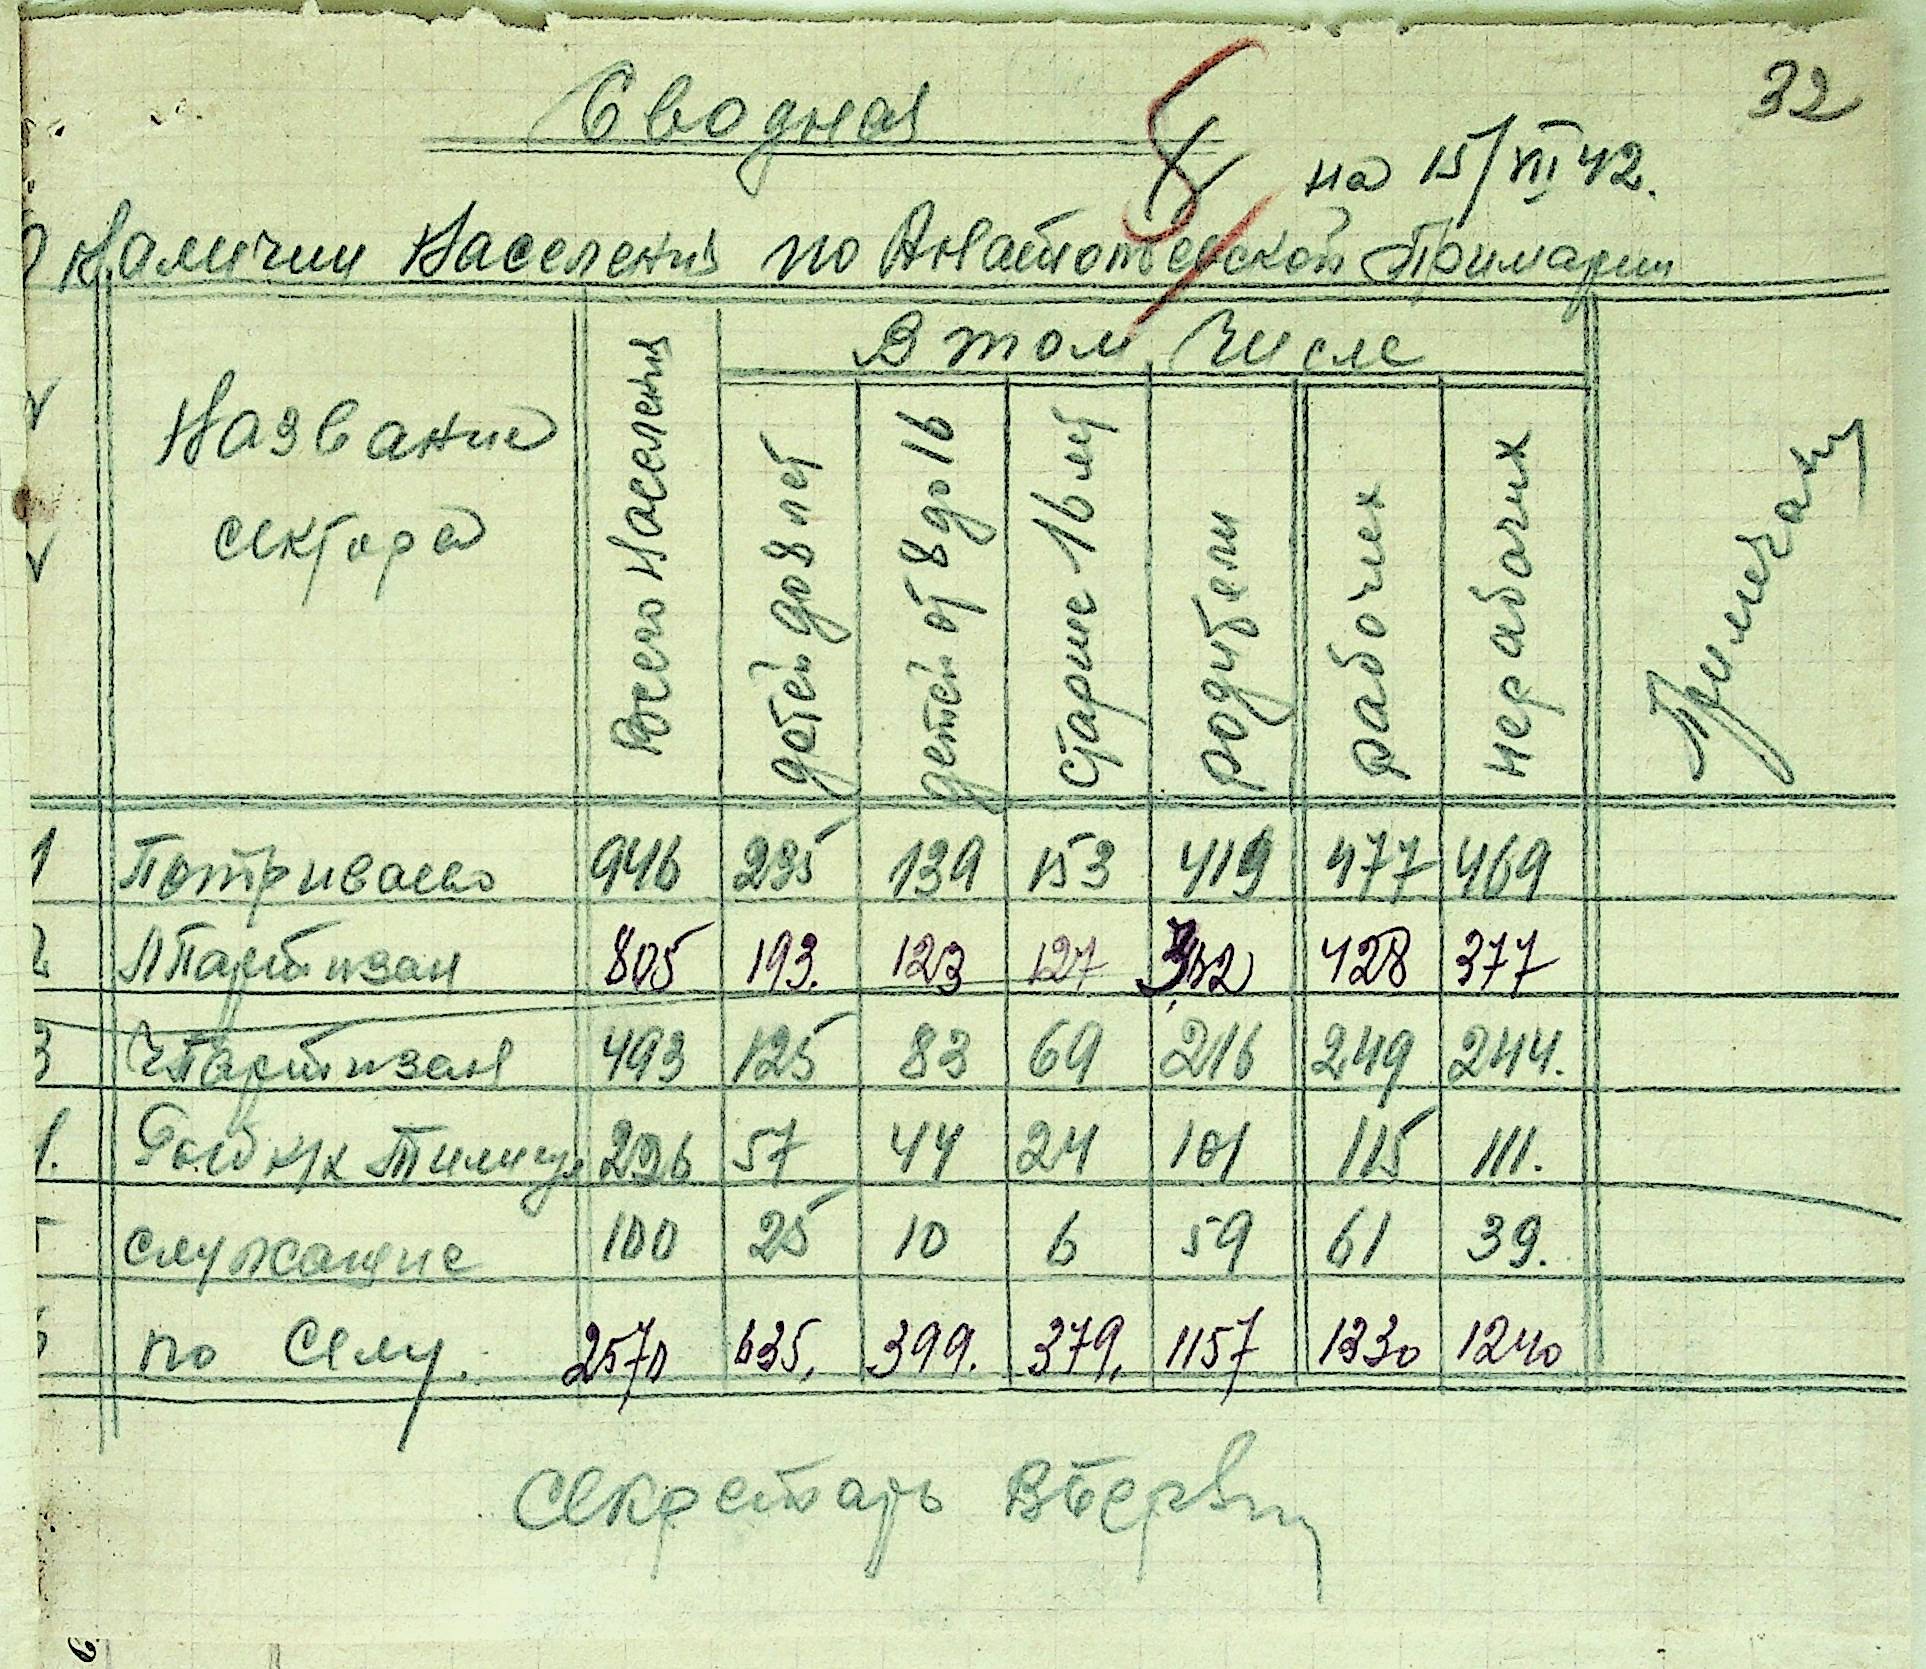 32
Сводная
на 15/VII 42.
О Наличии Населения по Анатольевской Примарии
Название сектора
Всего Населения
В том числе
детей до 8 лет
детей от 8 до 16
старше 16 лет
родители
рабочих
нерабочих
Примечан
1 Потриваево 946 235 139 153 419 477 469
2 Партизан 805 193. 123 127 362 428 377
3 Партизан 493 125 83 69 216 249 244.
226 57 44 24 101 115 111.
служащие 100 25 10 6 59 61 39.
по Селу. 2570 635, 399. 379, 1157 1330 1240
Секретарь